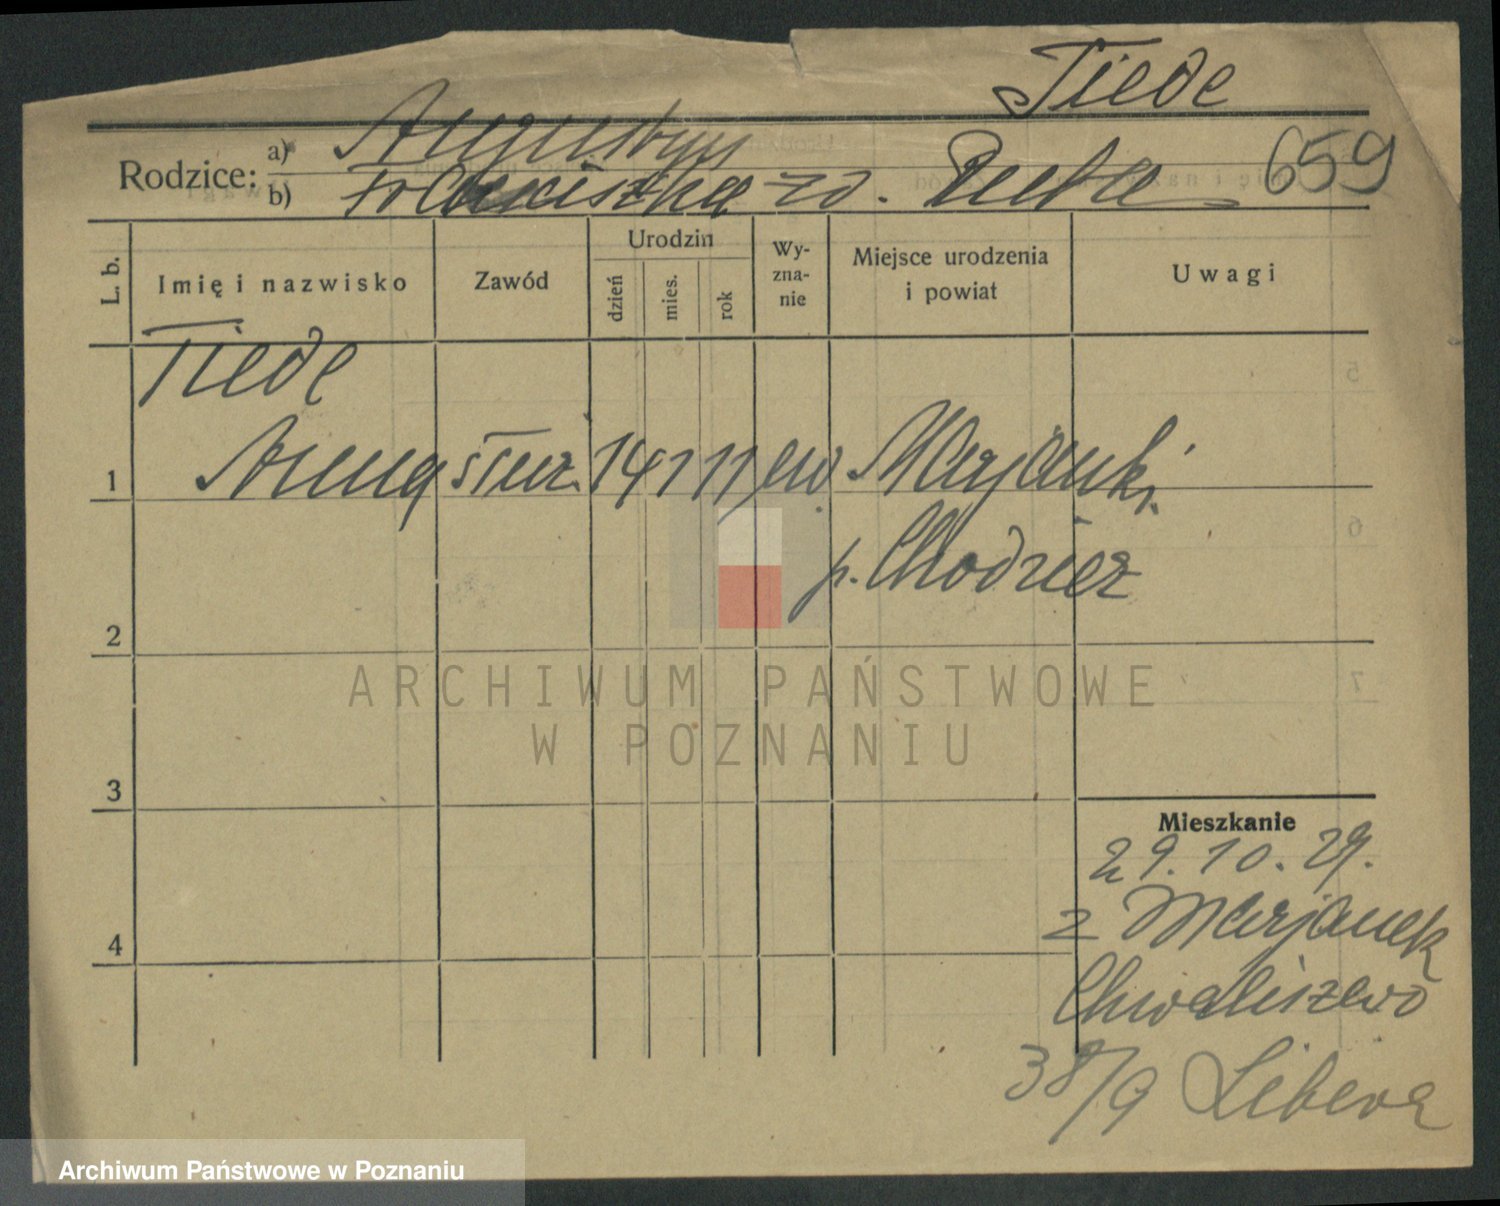 Tiede
659
Rodzice: a) Augustyn
b) Franciszka zd.
L. b. Imię i nazwisko Zawód Urodzin dzień mies. rok Wy-zna-nie Miejsce urodzenia i powiat Uwagi
Tiede
1 Anna służ. 14 1 11 ew Marjanki
p. Chodzież
2
3
4
Mieszkanie
29. 10. 29.
z Marjanek
Chwaliszewo
38/9 Libera
5
6
7
ARCHIWUM PAŃSTWOWE
W POZNANIU
Archiwum Państwowe w Poznaniu